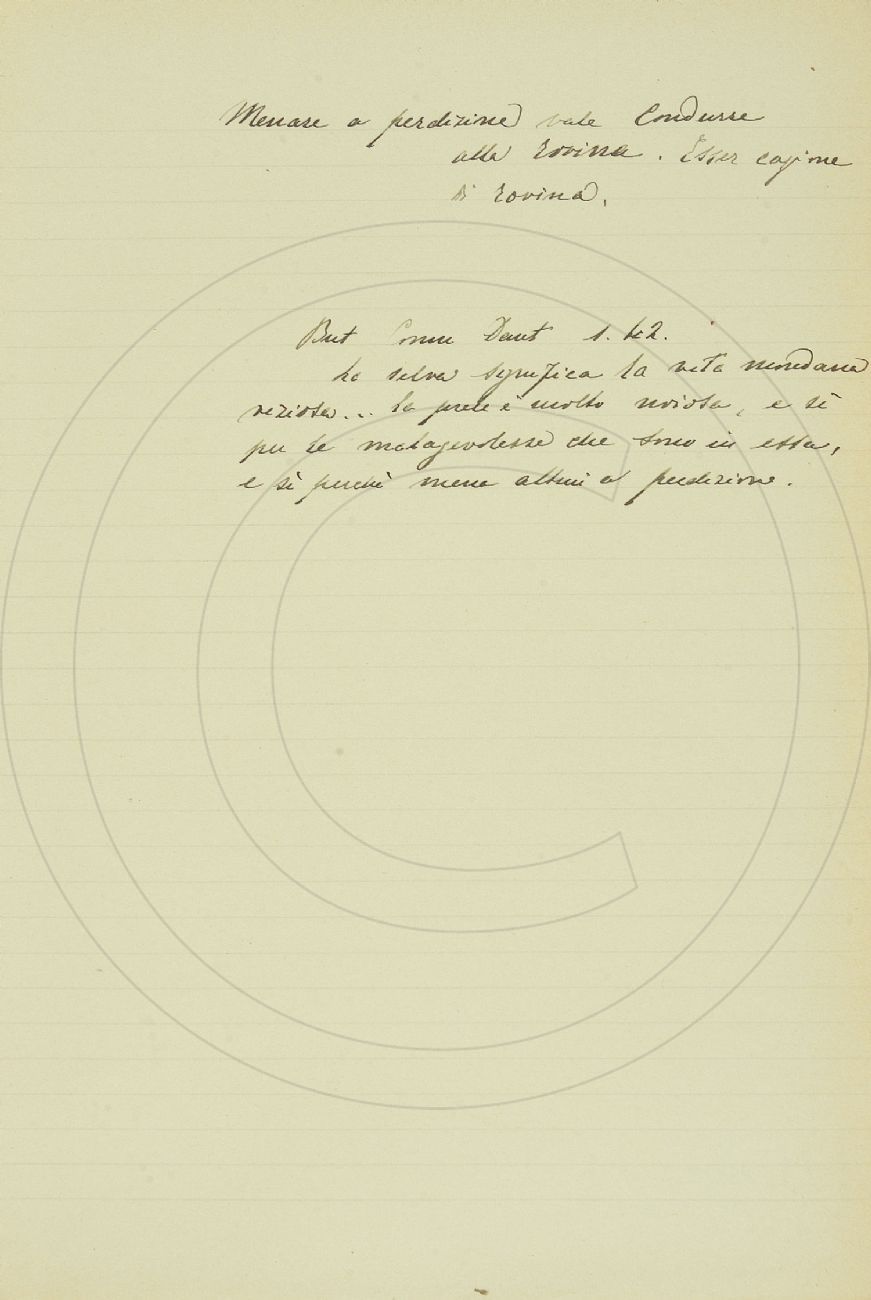 Menare a perdizine vale Condurre
alla rovina. Esser cagione
di rovina.
But Comm Dant 1.
La selva significa la vita mondana
viziosa... la quale è molto noiosa, e sì
per le malagevolezze che sono in essa,
e sì perchè mena altrui a perdizione.